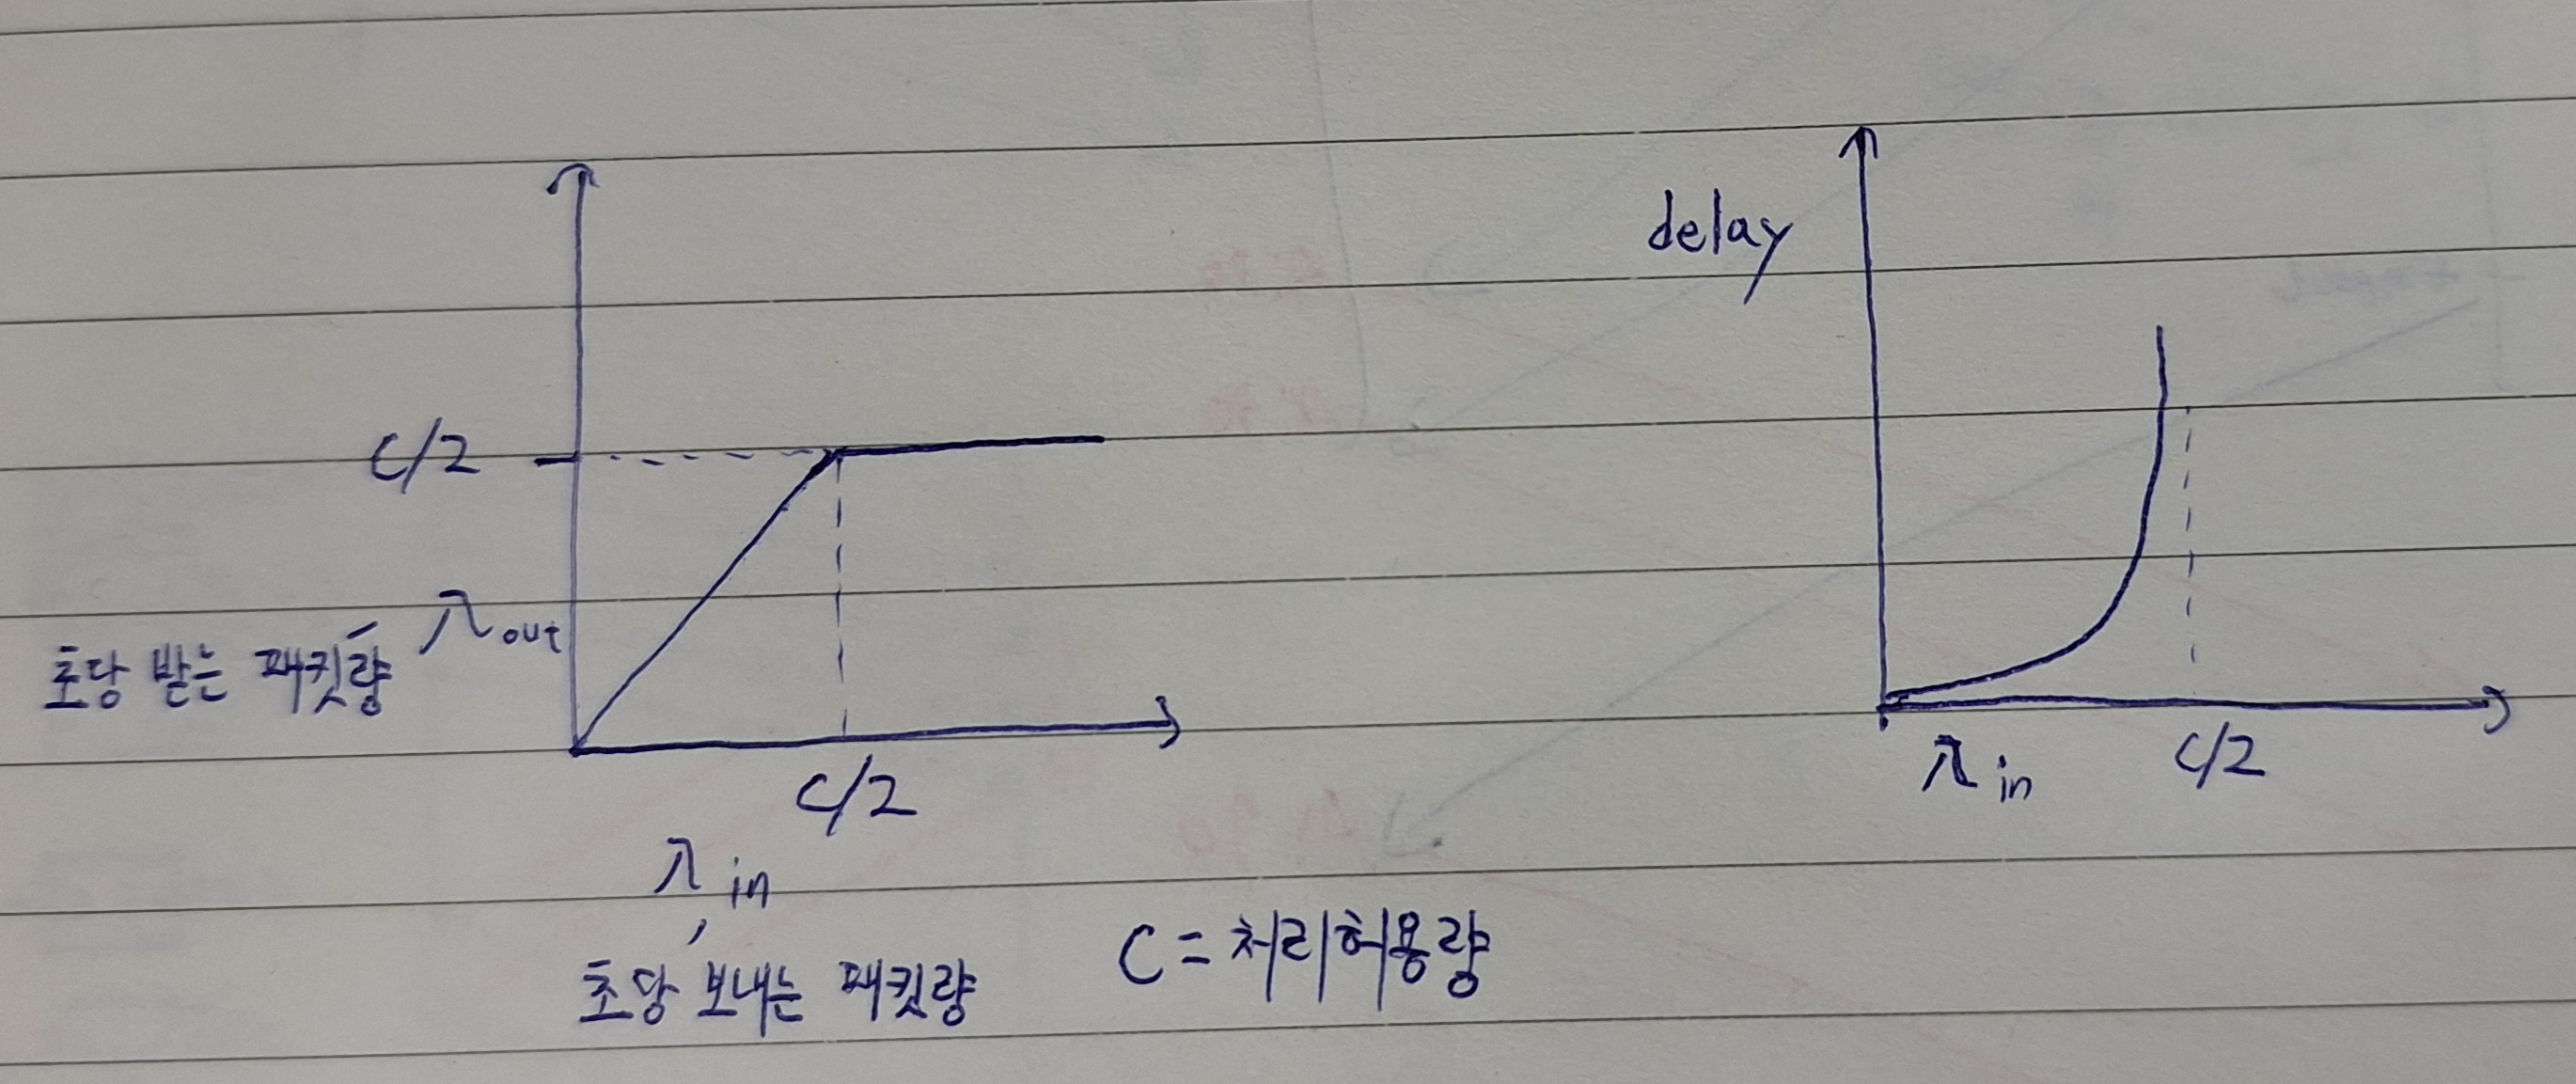 C/2
λout
초당 받는 패킷량
C/2
λin
초당 보내는 패킷량
C = 처리허용량
delay
λin
C/2